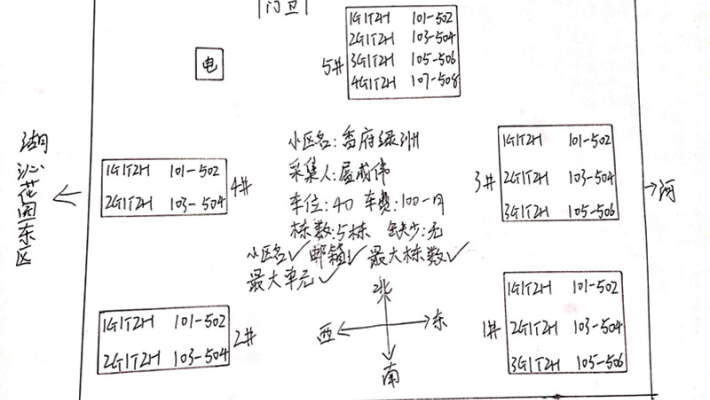 门卫
电
5#
1G1T2H 101-502
2G1T2H 103-504
3G1T2H 105-506
4G1T2H 107-508
湖沁花园东区
1G1T2H 101-502
2G1T2H 103-504
4#
小区名:香府绿洲
采集人:屈成伟
车位:40 车费:100一月
栋数:5栋 缺少:无
小区名✓ 邮箱✓ 最大栋数✓
最大单元✓
3#
1G1T2H 101-502
2G1T2H 103-504
3G1T2H 105-506
河
1G1T2H 101-502
2G1T2H 103-504
2#
北
西 东
南
1#
1G1T2H 101-502
2G1T2H 103-504
3G1T2H 105-506